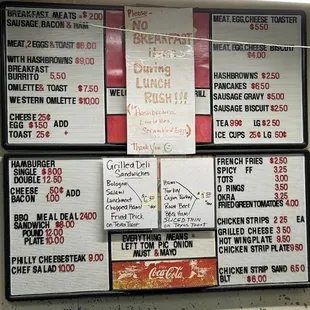 BREAKFAST MEATS • 2.00
SAUSAGE, BACON & HAM
MEAT, 2 EGGS & TOAST $8.00
WITH HASHBROWNS $9.00
BREAKFAST
BURRITO 5.50
OMLETTE & TOAST $7.50
WESTERN OMLETTE $10.00
CHEESE 25¢
EGG $150 ADD
TOAST 25¢
Please -
NO BREAKFAST
During
LUNCH
RUSH!!!
Hashbrowns
Scrambled Eggs
Thank You
MEAT, EGG, CHEESE TOASTER
$ 5.50
MEAT, EGG, CHEESE
BISCUIT $4.00
HASHBROWNS $2.50
PANCAKES $6.50
SAUSAGE GRAVY $5.00
SAUSAGE BISCUIT $2.50
TEA 99¢ LG $2.50
ICE CUPS 25¢ LG 50¢
HAMBURGER
SINGLE $ 8.00
DOUBLE 12.50
CHEESE 50¢ ADD
BACON $1.00
BBQ MEAL DEAL 24.00
SANDWICH $8.00
POUND 12.00
PLATE 10.00
PHILLY CHEESESTEAK 9.00
CHEF SALAD 10.00
Grilled Deli
Sandwiches
Bologna
Salami
Lunchmeat
Chopped Ham
Fried Thick
on Texas Toast
Ham
Turkey
Cajun Turkey
Roast Beef
BBQ Ham
SLICED THIN
on Texas Toast
EVERYTHING MEANS
LEFT TOM PIC ONION
MUST & MAYO
Coca-Cola
FRENCH FRIES $2.50
SPICY FF 3.25
TOTS 3.25
O RINGS 3.50
OKRA 3.25
FRIED GREEN TOMATOES 4.00
CHICKEN STRIPS 2.25 EA
GRILLED CHEESE 3.50
HOT WING PLATE 9.50
CHICKEN STRIP PLATE 9.50
CHICKEN STRIP SAND 6.50
BLT $6.00